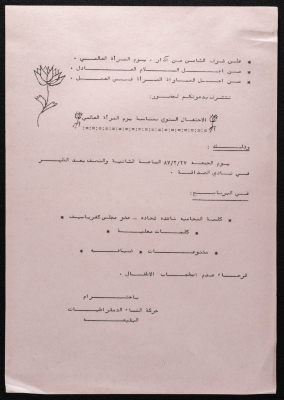 * على شرف الثامن من آذار ، يوم المرأة العالمي .
* من اجل السلام العادل .
* من اجل المساواة للمرأة في العمل .
نتشرف بدعوتكم لحضور:
الاحتفال السنوي بمناسبة يوم المرأة العالمي
وذلك :
يوم الجمعة ٨٧/٢/٢٧ الساعة الثانية والنصف بعد الظهر
في نادي الصداقة .
في البرنامج:
* كلمة المحامية شحادة - عضو مجلس كفرياسيف
* كلمات محلية *
* منوعات فنية *
الرجاء عدم اصطحاب الاطفال .
باحترام
حركة النساء الديمقراطيات